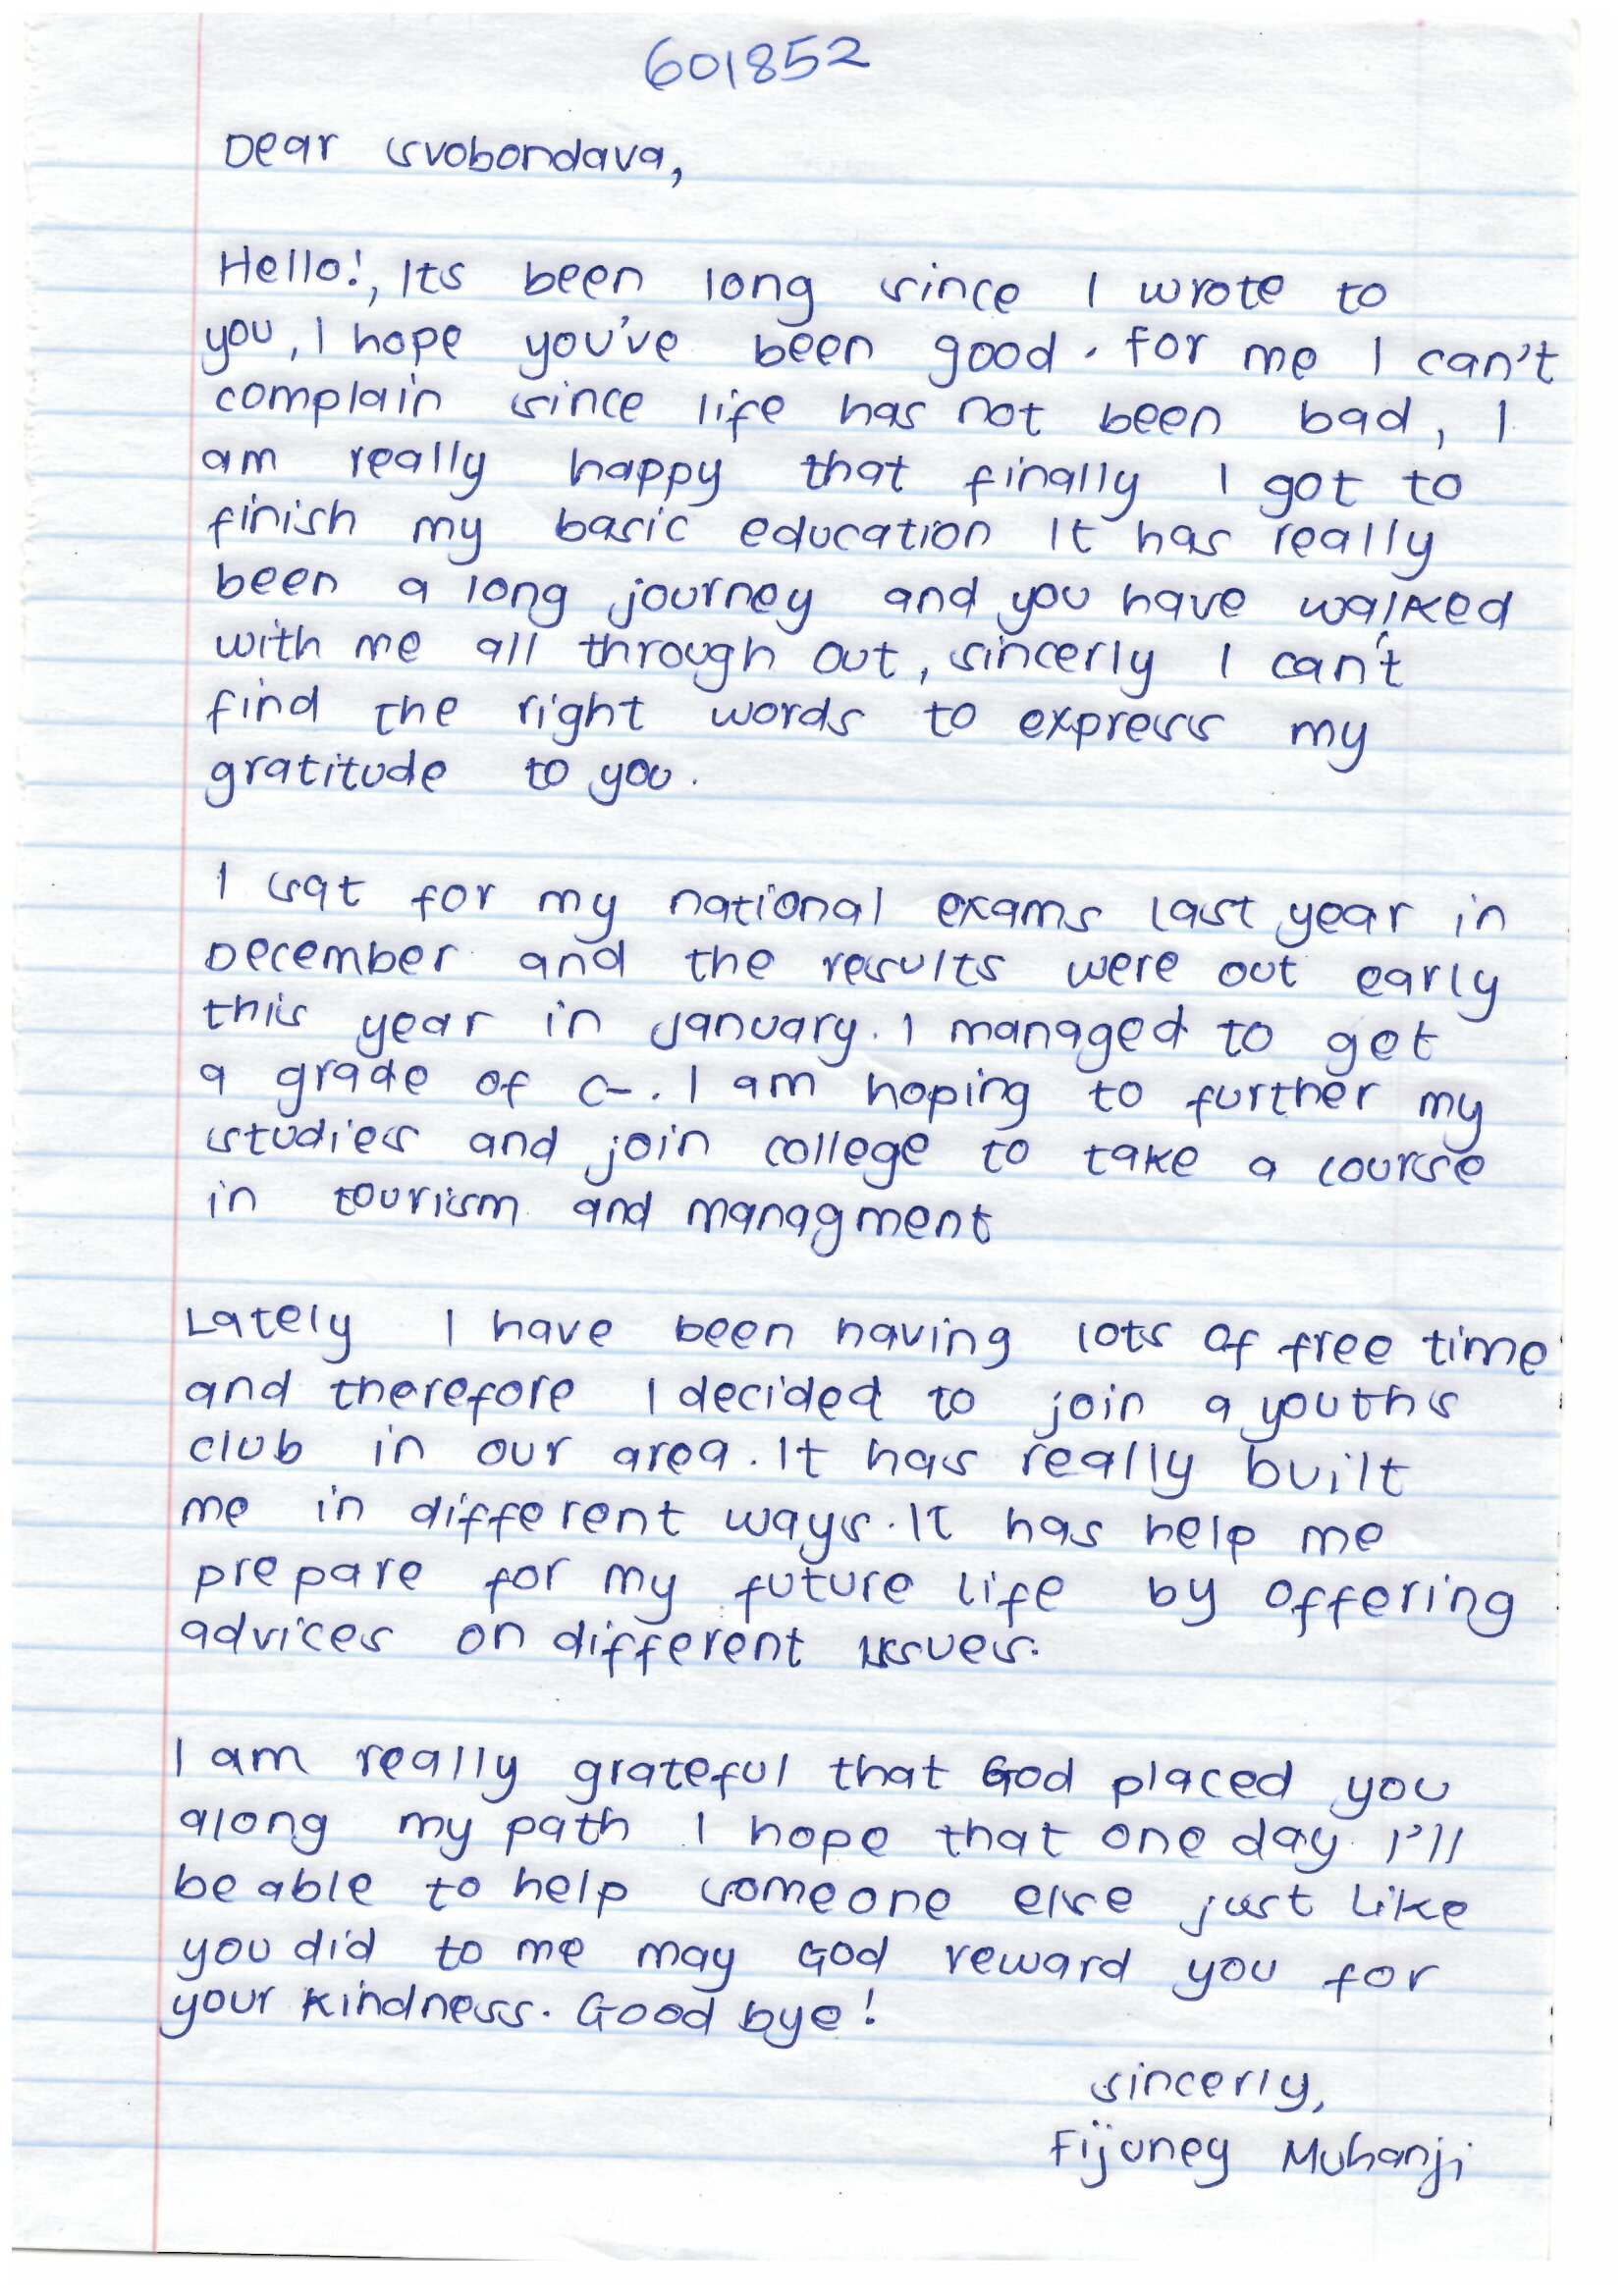 601852
Dear Svobondava,
Hello!, Its been long since I wrote to
you, I hope you've been good. For me I can't
complain since life has not been bad, I
am really happy that finally I got to
finish my basic education It has really
been a long journey and you have walked
with me all through out, sincerly I can't
find the right words to express my
gratitude to you.
I sat for my national exams last year in
December and the results were out early
this year in January. I managed to get
a grade of C-. I am hoping to further my
studies and join college to take a course
in tourism and managment
Lately I have been having lots of free time
and therefore I decided to join a youths
club in our area. It has really built
me in different ways. It has help me
prepare for my future life by offering
advices on different issues.
I am really grateful that God placed you
along my path I hope that one day I'll
be able to help someone else just like
you did to me may God reward you for
your kindness. Good bye!
sincerly,
Fijuney Muhanji